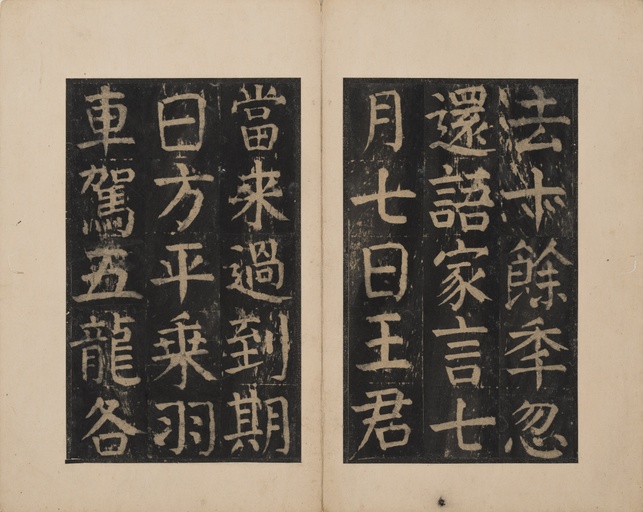 法十餘季忽
還語家言七
月七日王君
當来過到期
日方平乗羽
車駕五龍各